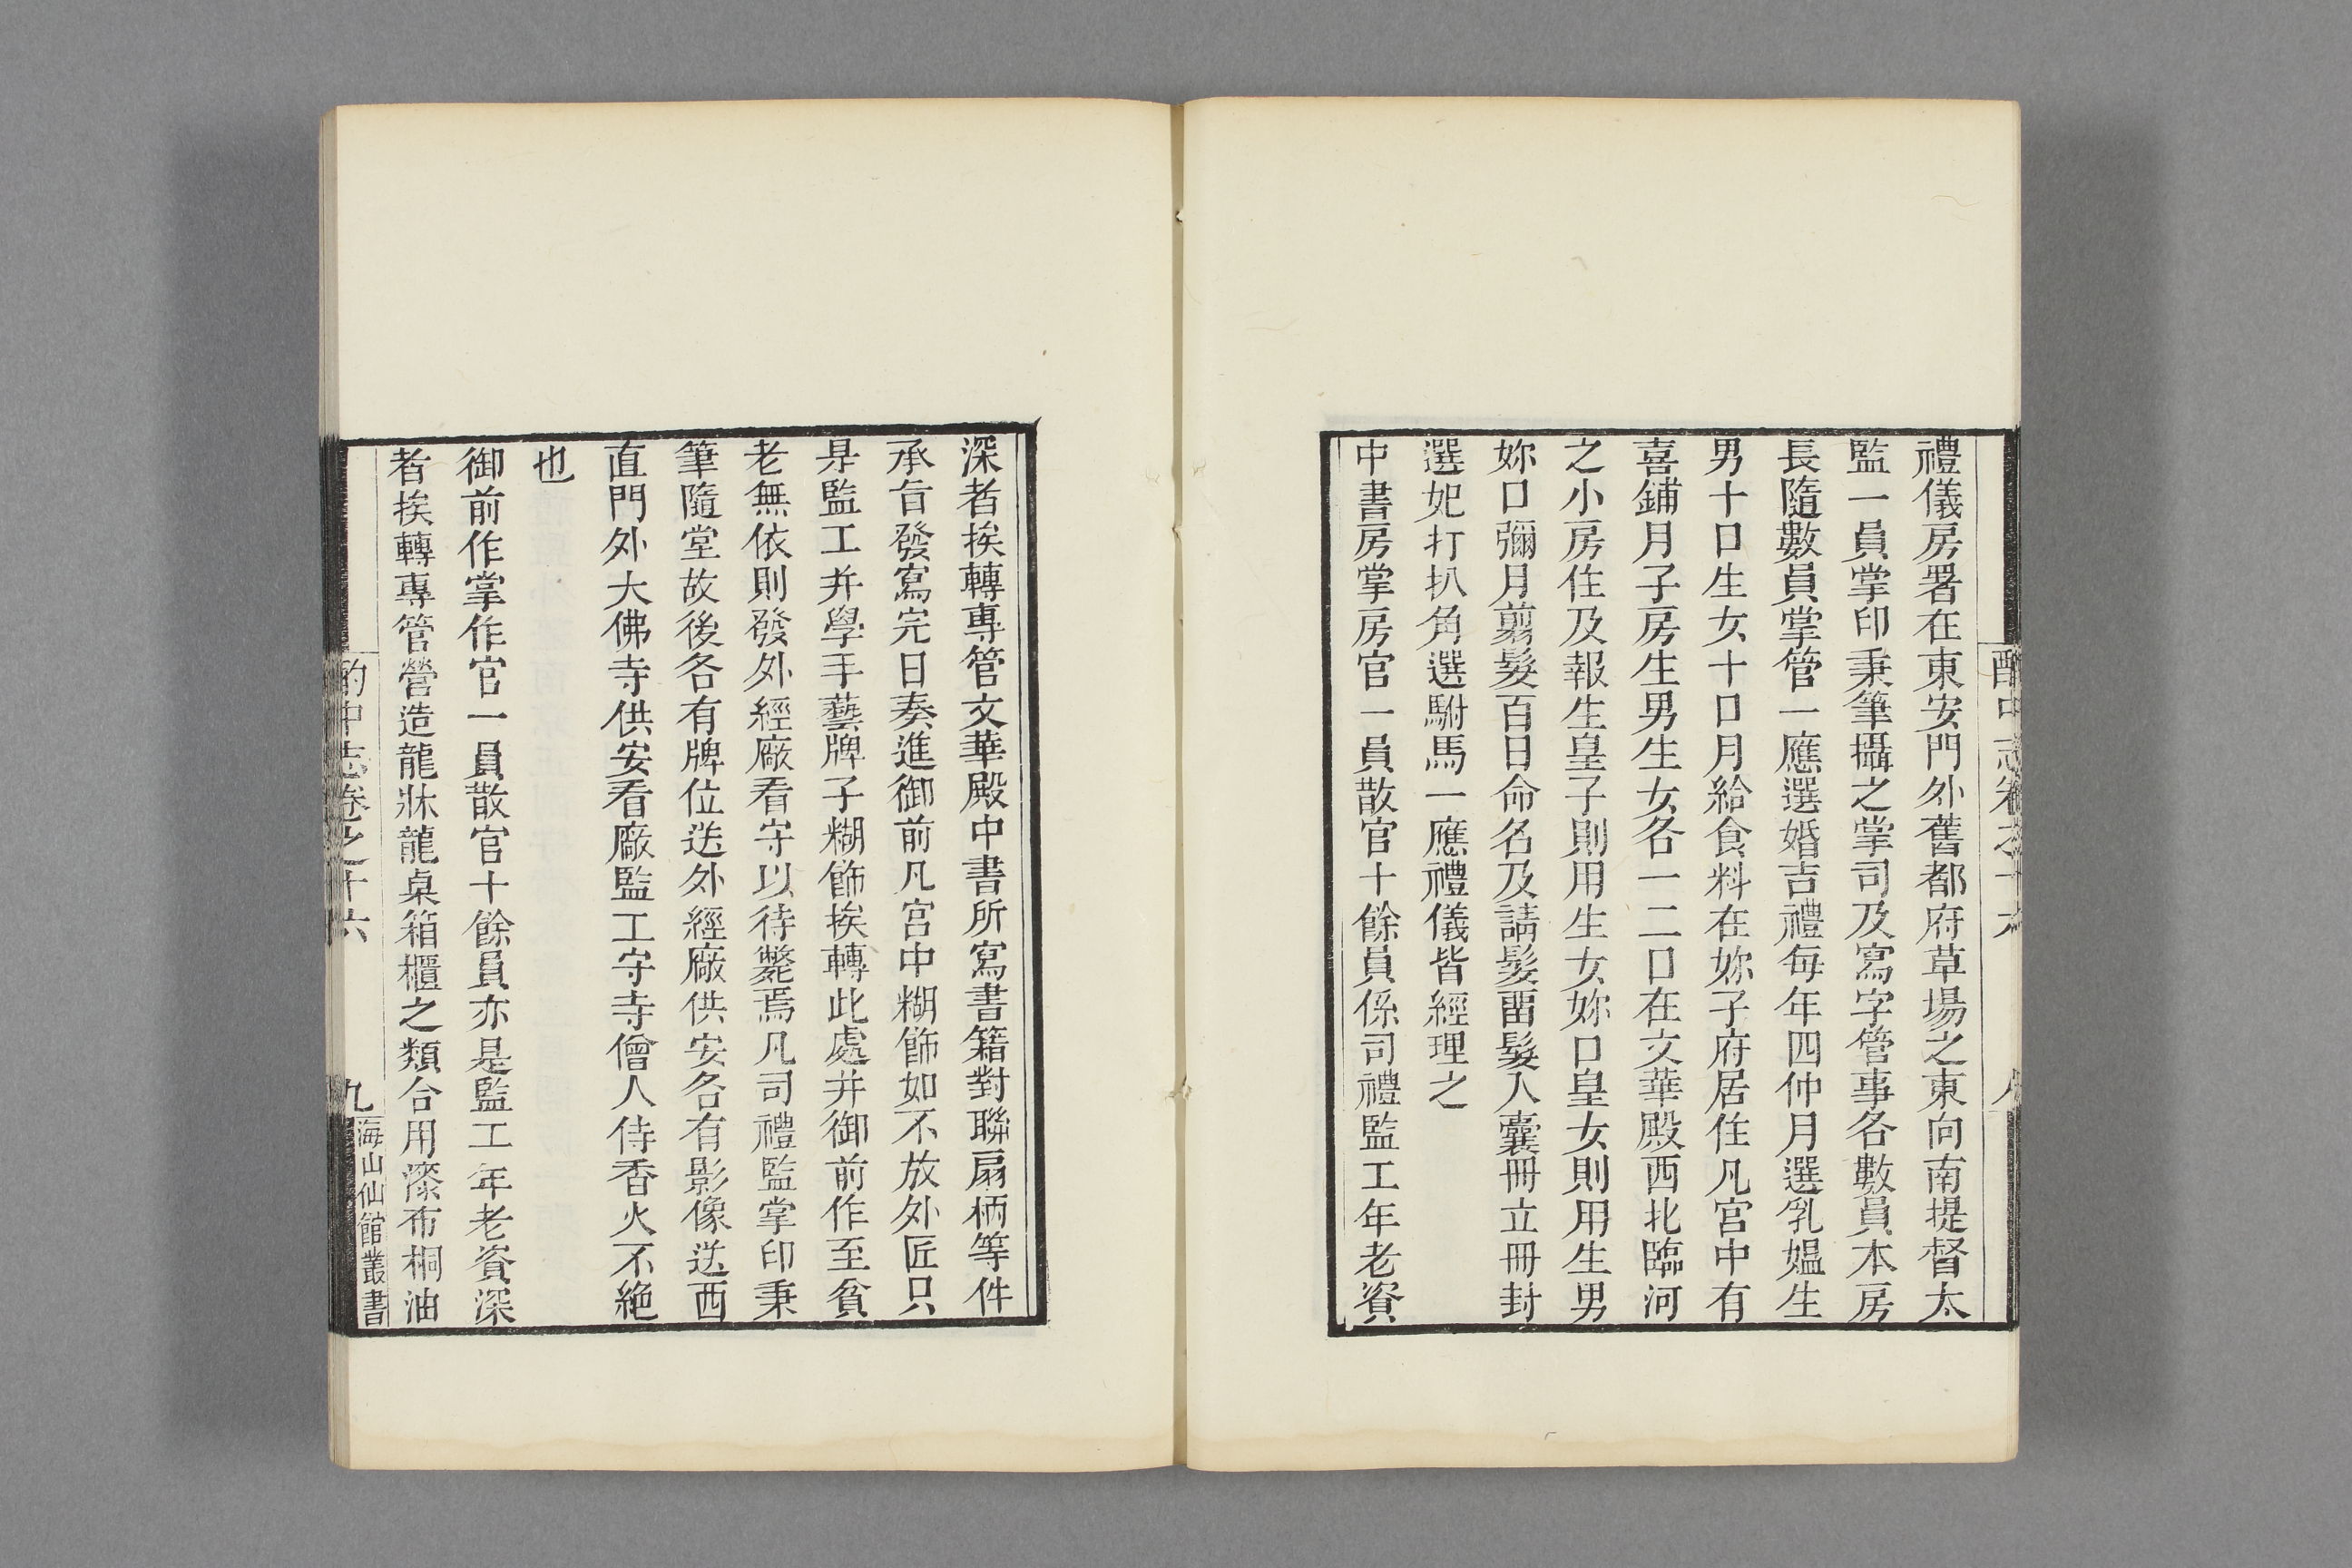 酌中志卷之十六
八
禮儀房署在東安門外舊都府草場之東向南提督太
監一員掌印秉筆攝之掌司及寫字管事各數員本房
長隨數員掌管一應選婚吉禮每年四仲月選乳媼生
男十口生女十口月給食料在妳子府居住凡宮中有
喜鋪月子房生男生女各一二口在文華殿西北臨河
之小房住及報生皇子則用生女妳口皇女則用生男
妳口彌月剪髮百日命名及請髮畱髮入囊冊立冊封
選妃打扒角選駙馬一應禮儀皆經理之
中書房掌房官一員散官十餘員係司禮監工年老資
深者挨轉專管文華殿中書所寫書籍對聯扇柄等件
承旨發寫完日奏進御前凡宮中糊飾如不放外匠只
是監工并學手藝牌子糊飾挨轉此處并御前作至貧
老無依則發外經廠看守以待斃焉凡司禮監掌印秉
筆隨堂故後各有牌位送外經廠供安各有影像送西
直門外大佛寺供安看廠監工守寺僧人侍香火不絶
也
御前作掌作官一員散官十餘員亦是監工年老資深
者挨轉專管營造龍牀龍桌箱櫃之類合用漆布桐油
酌中志卷之十六
九
海山仙館叢書